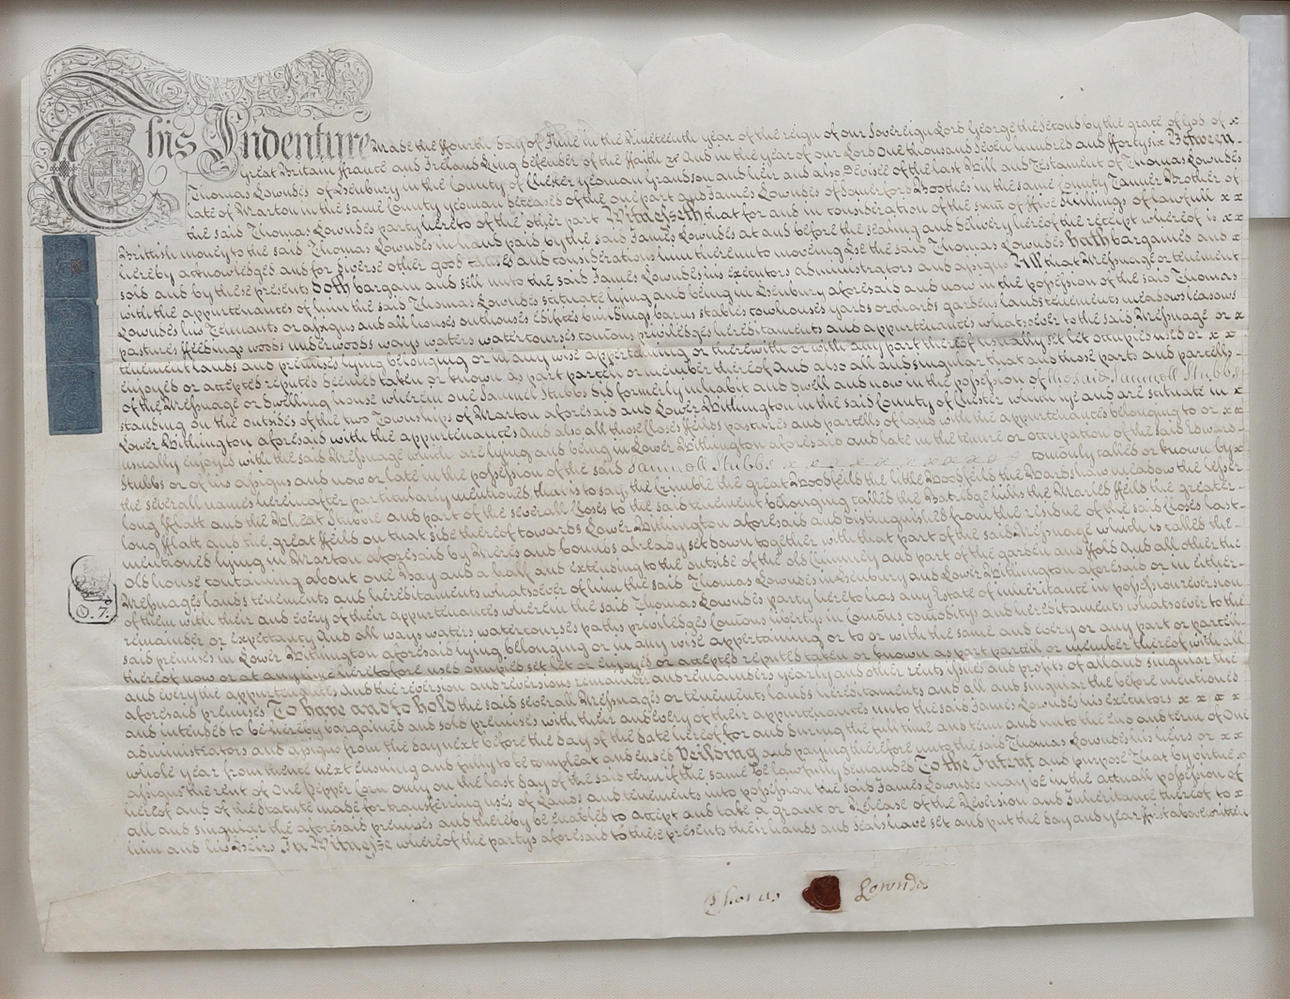 This Indenture Made the ffourth day of June in the Nineteenth year of the reign of our Sovereign Lord George the Second by the grace of God of x
Great Britain ffrance and Ireland King defender of the ffaith &c And in the year of our Lord One thousand Seven hundred and fforty six Between
Thomas Lowndes of Isenbury in the County of Chester yeoman Grandson and heir and also Devisee of the last Will and Testament of Thomas Lowndes
late of Marton in the same County yeoman deceased of the one part and James Lowndes of Somerford Boothes in the same County Tanner Brother of
the said Thomas Lowndes party hereto of the other part Witnesseth that for and in consideration of the sum of ffive Shillings of lawfull x x
Brittish money to the said Thomas Lowndes in hand paid by the said James Lowndes at and before the sealing and delivery hereof the receipt whereof is x x
hereby acknowledged and for diverse other good causes and considerations him thereunto moveing hee the said Thomas Lowndes hath bargained and x
sold and by these presents doth bargain and sell unto the said James Lowndes his executors administrators and assigns All that Messuage or tenement
with the appurtenances of him the said Thomas Lowndes scituate lying and being in Isenbury aforesaid and now in the possession of the said Thomas
Lowndes his Tennants or assigns and all houses outhouses edifices buildings barns stables cowhouses yards orchards gardens lands tenements meadows leasows
pastures ffeedings woods underwoods ways waters watercourses comons priviledges hereditaments and appurtenances whatsoever to the said Messuage or x
tenement lands and premises lying belonging or in any wise appertaining or therewith or with any part thereof usually set let occupied used or x x
enjoyed or accepted reputed deemed taken or known as part parcell or member thereof And also all and singular that and those parts and parcells
of the Messuage or dwelling house wherein one Samuel Stubbs did formerly inhabit and dwell and now in the possession of the said Samuell Stubbs
standing on the outsides of the two Townships of Marton aforesaid and Lower Withington in the said County of Chester which lye and are scituate in x
Lower Withington aforesaid with the appurtenances And also all those Closes ffeilds pastures and parcells of land with the appurtenances belonging to or x x
usually enjoyed with the said Messuage which are lying and being in Lower Withington aforesaid and late in the tenure or occupation of the said Edward
Stubbs or of his assigns and now or late in the possession of the said Samuell Stubbs x x x x x x x x x x comonly called or known by x
the severall names hereinafter particularly mentioned that is to say the Crimble the great Woodfeild the little Woodfeild the meadow the lesser
long fflatt and the Wheat Stubble and part of the severall Closes to the said tenement belonging called the hills the Marled ffeild the greater
long fflatt and the great ffeild on that side thereof towards Lower Withington aforesaid and distinguished from the residue of the said Closes last
mentioned lying in Marton aforesaid by Meres and bounds already set down together with that part of the said Messuage which is called the
old house containing about one Bay and a half and extending to the outside of the old Chimney and part of the garden and ffold And all other the
Messuages lands tenements and hereditaments whatsoever of him the said Thomas Lowndes in Isenbury and Lower Withington aforesaid or in either
of them with their and every of their appurtenances wherein the said Thomas Lowndes party hereto has any Estate of inheritance in possession reversion
remainder or expectancy And all ways waters watercourses paths priviledges comons liberty in Comons comoditys and hereditaments whatsoever to the
said premises in Lower Withington aforesaid lying belonging or in any wise appertaining or to or with the same and every or any part or parcell
thereof now or at any time heretofore used occupied set let or enjoyed or accepted reputed taken or known as part parcell or member thereof with all
and every the appurtenances And the reversion and reversions remainder and remainders yearly and other rents issues and profits of all and singular the
aforesaid premises To have and to hold the said severall Messuages or tenements lands hereditaments and all and singular the before mentioned
and intended to be hereby bargained and sold premises with their and every of their appurtenances unto the said James Lowndes his executors x x x x
administrators and assigns from the day next before the day of the date hereof for and during the full time and term and unto the end and term of One
whole year from thence next ensuing and fully to be compleat and ended Yeilding and paying therefore unto the said Thomas Lowndes his heirs or x x
assigns the rent of One Pepper Corn only on the last day of the said term if the same be lawfully demanded To the Intent and purpose that by virtue x
hereof and of the Statute made for transferring uses of Lands and tenements into possession the said James Lowndes may be in the actuall possession of
all and singular the aforesaid premises and thereby be enabled to accept and take a grant or Release of the Reversion and Inheritance thereof to x
him and his Heirs In Witnesse whereof the partys aforesaid to these presents their hands and seals have set and put the day and year first abovewritten
Thomas Lowndes